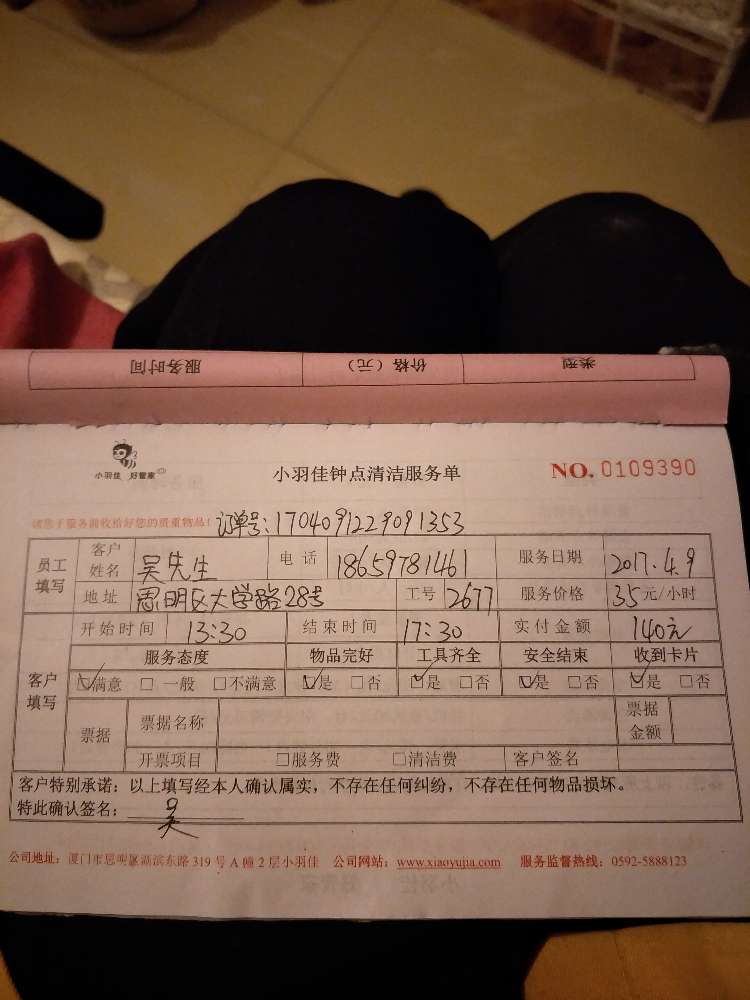 服务时间 价格（元） 类型
小羽佳 好管家
小羽佳钟点清洁服务单
NO. 0109390
请您于服务前收拾好您的贵重物品！ 订单号:1704091229091353
员工填写 客户姓名 吴先生 电话 18659781461 服务日期 2017.4.9
地址 思明区大学路28号 工号 2677 服务价格 35元/小时
客户填写 开始时间 13:30 结束时间 17:30 实付金额 140元
服务态度 物品完好 工具齐全 安全结束 收到卡片
☑满意 □一般 □不满意 ☑是 □否 ☑是 □否 ☑是 □否 ☑是 □否
票据 票据名称 票据金额
开票项目 □服务费 □清洁费 客户签名
客户特别承诺：以上填写经本人确认属实，不存在任何纠纷，不存在任何物品损坏。
特此确认签名：吴
公司地址：厦门市思明区湖滨东路 319 号 A 幢 2 层小羽佳 公司网站：www.xiaoyujia.com 服务监督热线：0592-5888123